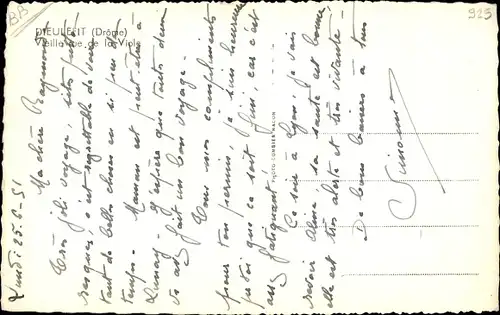 BB
923
DIEULEFIT (Drôme)
Vieille rue de la Viale
PHOTO-COMBIER MACON
Lundi 25-6-51
Ma chère Raymonde
Très joli voyage, très
c'est regrettable de voir
tant de belles choses en si peu de
temps. Maman est peut-être à
J'espère que toutes deux
vs avez fait un bon voyage.
Tous mes compliments
pour ton permis, je suis heureuse
que ce soit fini, car c'est
assez fatiguant!
Ce soir à Lyon, je vais
revoir Aline, sa santé est bonne,
elle est très alerte et très vivante.
De bons baisers à tous
Simone